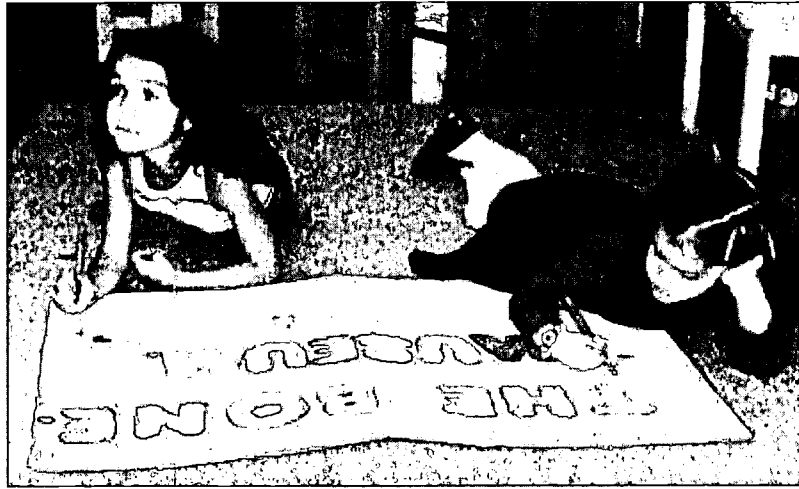 THE BONE
MUSEUM